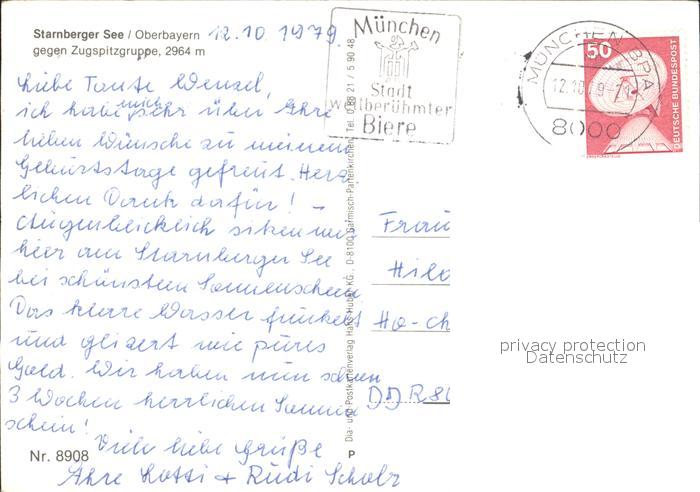 Starnberger See / Oberbayern
gegen Zugspitzgruppe, 2964 m
12.10 1979.
Liebe Tante Wenzel,
ich habe mich sehr über Ihre
lieben Wünsche zu meinem
Geburtstage gefreut. Herz-
lichen Dank dafür! –
Augenblicklich sitzen wir
hier am Starnberger See
bei schönstem Sonnenschein
Das klare Wasser funkelt
und glizert wie pures
Gold. Wir haben nun schon
3 Wochen herrlichen Sonnen
schein!
Viele liebe Grüße
Ihre Lotti + Rudi Scholz
Nr. 8908
Dia- und Postkartenverlag Hans Huber KG., D-8100 Garmisch-Partenkirchen, Tel. 0 88 21 / 5 90 48
P
München
Stadt
weltberühmter
Biere
MÜNCHEN BPA
12.10.79-21
8000
50
DEUTSCHE BUNDESPOST
Frau
Hild
Ho-ch
DDR 80
privacy protection
Datenschutz